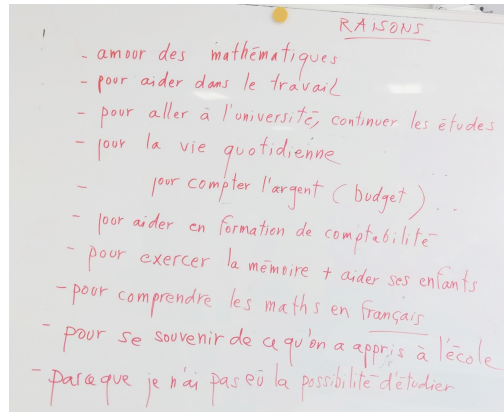 RAISONS
- amour des mathématiques
- pour aider dans le travail
- pour aller à l'université, continuer les études
- pour la vie quotidienne
- pour compter l'argent (budget)...
- pour aider en formation de comptabilité
- pour exercer la mémoire + aider ses enfants
- pour comprendre les maths en français
- pour se souvenir de ce qu'on a appris à l'école
- parce que je n'ai pas eû la possibilité d'étudier